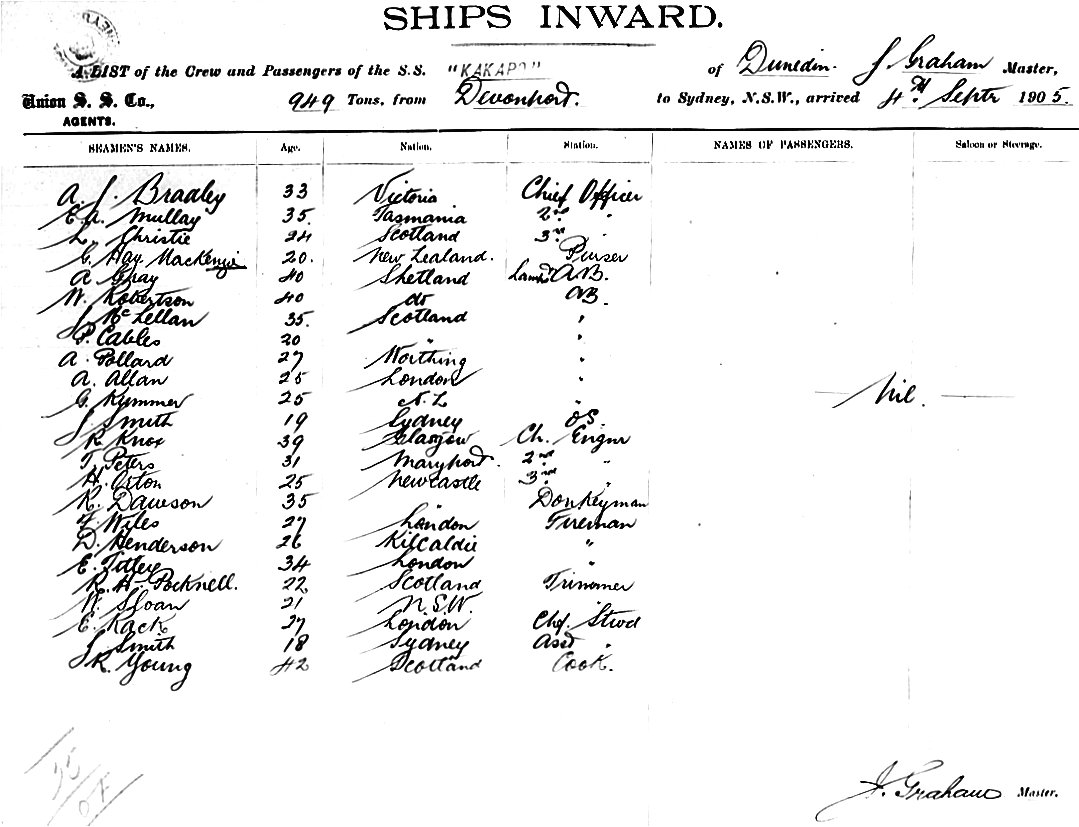 SHIPS INWARD.
A LIST of the Crew and Passengers of the S.S. "KAKAPO" of Dunedin. J Graham Master,
Union S. S. Co., 949 Tons, from Devonport. to Sydney, N.S.W., arrived 4th Septr 1905.
AGENTS.
SEAMEN'S NAMES. Age. Nation. Station. NAMES OF PASSENGERS. Saloon or Steerage.
A. J. Bradley 33 Victoria Chief Officer
E.A. Mullay 35. Tasmania 2nd "
L. Christie 24 Scotland 3rd "
G. Hay MacKenzie 20. New Zealand. Purser
A Gray 40 Shetland Lamps AB.
W. Robertson 40 do AB.
J McLellan 35. Scotland "
P. Cables 20 " "
A. Pollard 27 Worthing "
A. Allan 25 London "
G. Kummer 25 N.Z "
Nil.
J Smith 19 Sydney OS.
R. Knox 39 Glasgow Ch. Enginr
T. Peters 31 Maryport. 2nd "
H. Orton 25 Newcastle 3rd "
R. Dawson 35 " Donkeyman
F. Wiles 27 London Fireman
D. Henderson 26 Kilcaldie "
E. Titley 34 London "
R. H. Pocknell. 22 Scotland Trimmer
W. Sloan 21 N.S.W. "
E. Rack 27 London Chf. Stwd
J Smith 18 Sydney Asst "
R. Young 42 Scotland Cook.
J. Graham Master.